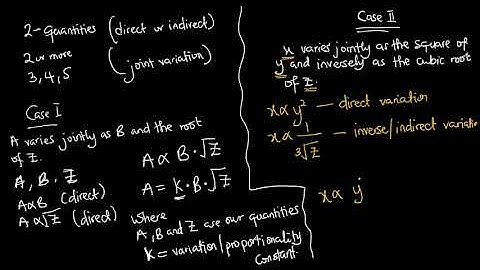 2-Quantities (direct or indirect)
2 or more
3, 4, 5 (joint variation)
Case I
A varies jointly as B and the root
of Z.
A, B, Z
A∝B (direct)
A∝√Z (direct)
A∝B·√Z
A=K·B·√Z
where
A, B and Z are our quantities
K = variation/proportionality
constant
Case II
x varies jointly as the square of
y and inversely as the cubic root
of z.
x∝y² — direct variation
x∝ 1/3√Z — inverse/indirect variation
x∝ y